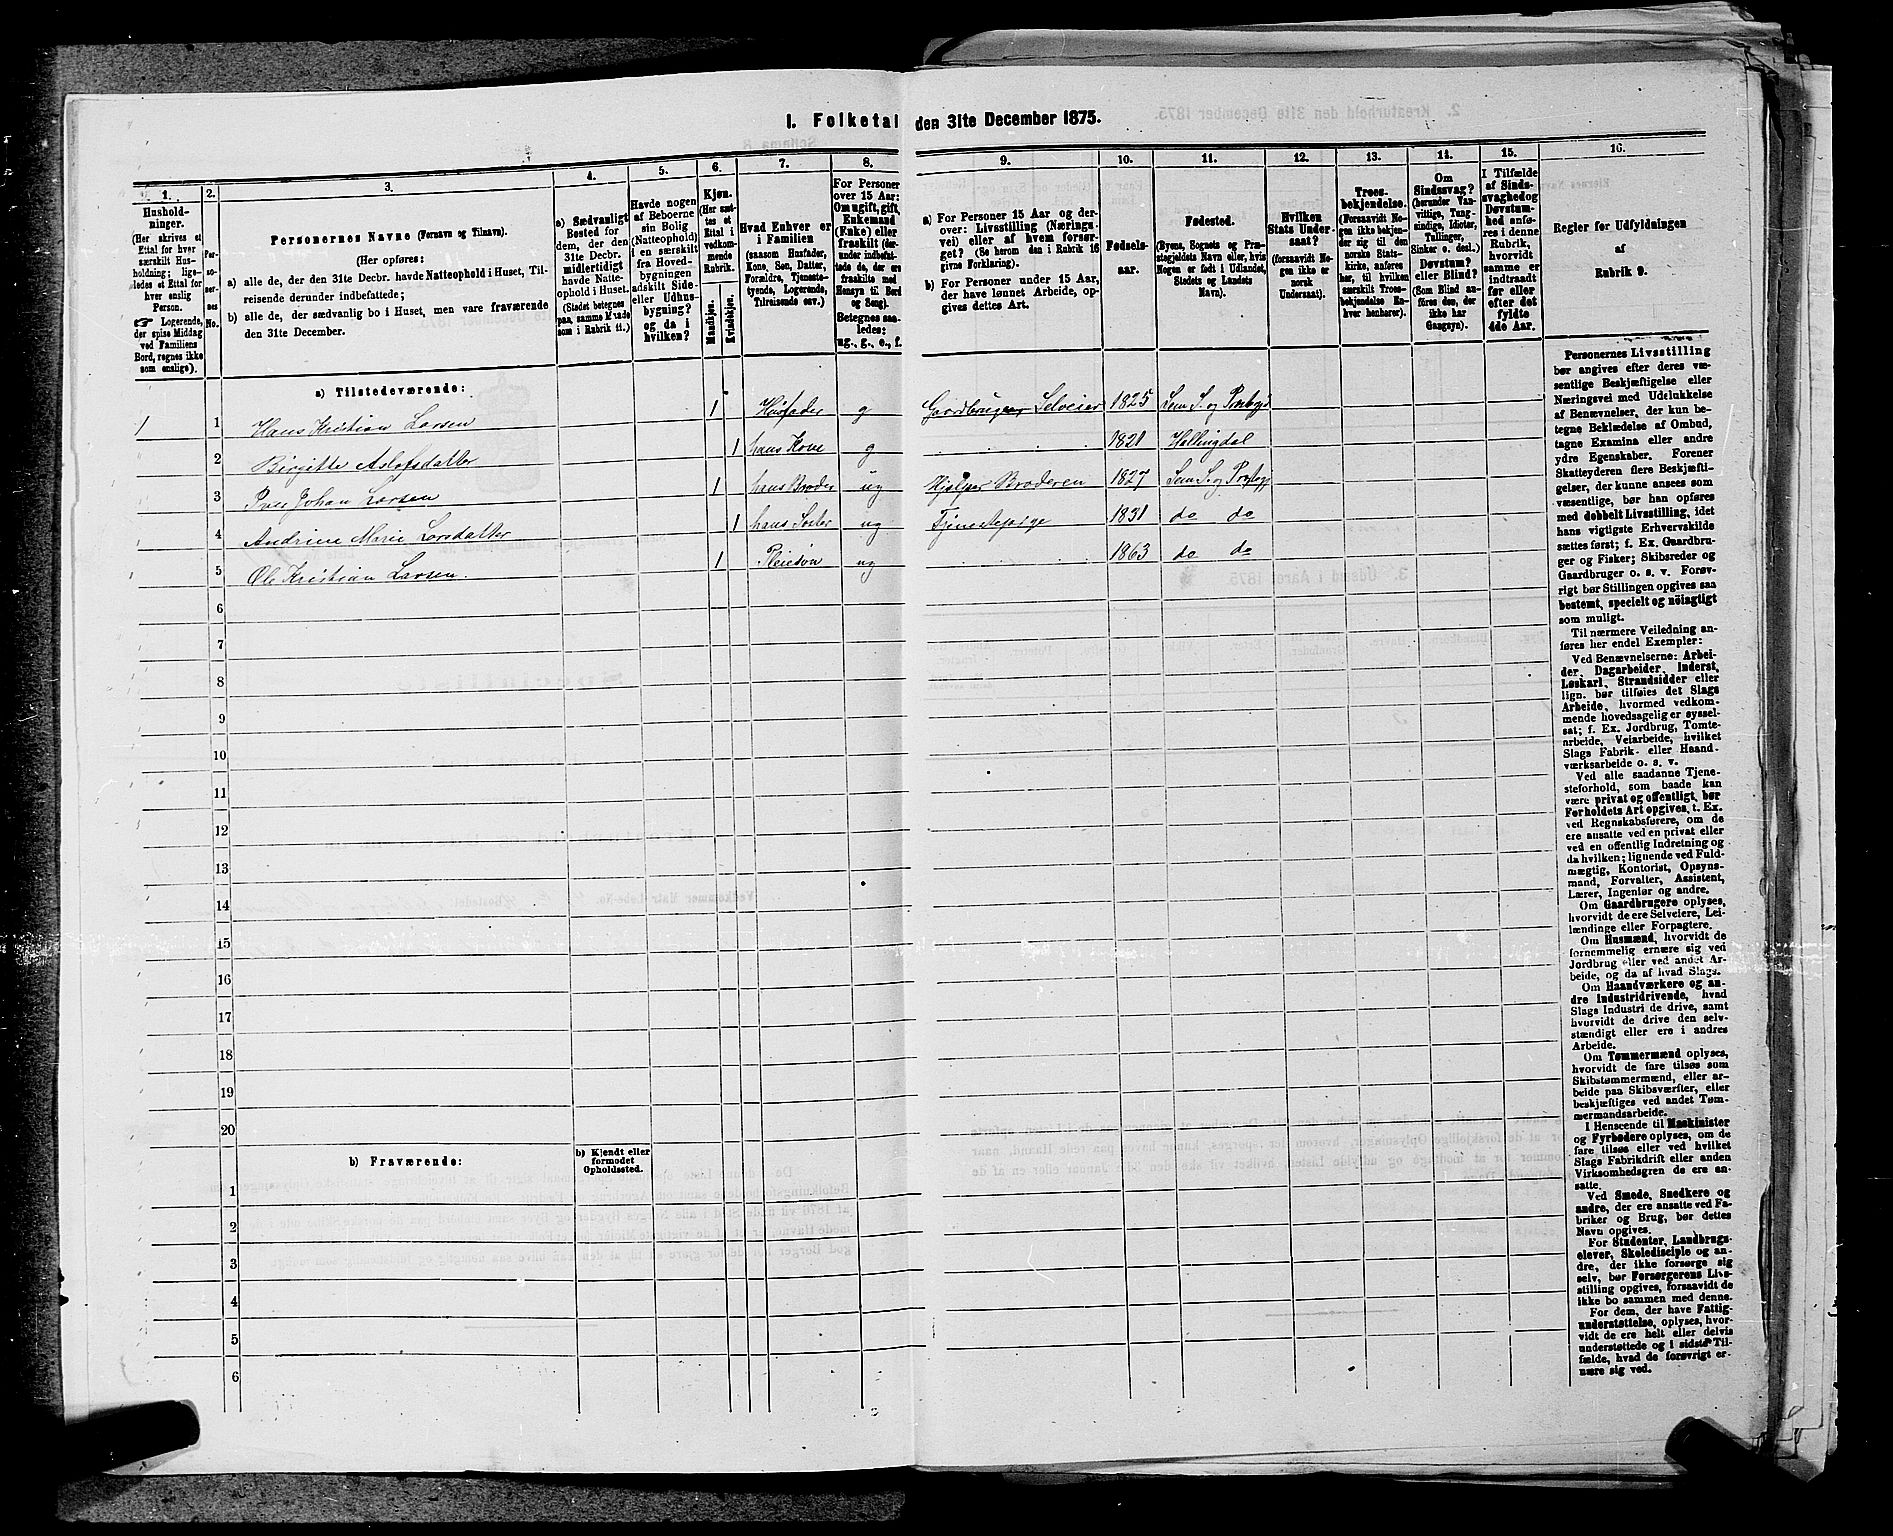 I. Folketal den 31te December 1875.
1.
2.
3.
4.
5.
6.
7.
8.
9.
10.
11.
12.
13.
14.
15.
16.
Hushold-
ninger.
(Her skrives et
Ettal for hver
særskilt Hus-
holdning; lige-
ledes et Ettal for
hver enslig
Person.
☞ Logerende,
der spise Middag
ved Familiens
Bord, regnes ikke
som enslige).
Per-
so-
ner-
nes
No.
Personernes Navne (Fornavn og Tilnavn).
(Her opføres:
a) alle de, der den 31te Decbr. havde Natteophold i Huset, Til-
reisende derunder indbefattede;
b) alle de, der sædvanlig bo i Huset, men vare fraværende
den 31te December.
a) Sædvanligt
Bosted for
dem, der den
31te Decbr.
midlertidigt
havde Natte-
ophold i Huset.
(Stedet betegnes
paa samme Maade
som i Rubrik 11.)
Havde nogen
af Beboerne
sin Bolig
(Natteophold)
i en særskilt
fra Hoved-
bygningen
adskilt Side-
eller Udhus-
bygning?
og da i
hvilken?
Kjøn.
(Her sæt-
tes et
Ettal i
vedkom-
mende
Rubrik.
Mandkjøn.
Kvindekjøn.
Hvad Enhver er
i Familien
(saasom Husfader,
Kone, Søn, Datter,
Forældre, Tjeneste-
tyende, Logerende,
Tilreisende osv.)
For Personer
over 15 Aar:
Om ugift, gift,
Enkemand
(Enke) eller
fraskilt (der-
under indbefat-
tede de, der ere
fraskilte med
Hensyn til Bord
og Seng).
Betegnes saa-
ledes:
ug., g., e., f.
a) For Personer 15 Aar og der-
over: Livsstilling (Nærings-
vei) eller af hvem forsør-
get? (Se herom den i Rubrik 16
givne Forklaring).
b) For Personer under 15 Aar,
der have lønnet Arbeide, op-
gives dettes Art.
Fødsels-
aar.
Fødested.
(Byens, Sognets og Præ-
stegjeldets Navn eller, hvis
Nogen er født i Udlandet,
Stedets og Landets
Navn).
Hvilken
Stats Under-
saat?
(forsaavidt No-
gen ikke er
norsk
Undersaat).
Troes-
bekjendelse.
(Forsaavidt No-
gen ikke bekjen-
der sig til den
norske Stats-
kirke, anføres
her, til hvilken
særskilt Troes-
bekjendelse En-
hver henhører).
Om
Sindssvag?
(herunder Van-
vittige, Tung-
sindige, Idioter,
Tullinger,
Sinker o. desl.)
Døvstum?
eller Blind?
(Som Blind an-
føres den, der
ikke har
Gangsyn).
I Tilfælde
af Sinds-
svaghed og
Døvstum-
hed anfø-
res i denne
Rubrik,
hvorvidt
samme er
indtraadt
før eller
efter det
fyldte
4de Aar.
Regler for Udfyldningen
af
Rubrik 9.
a) Tilstedeværende:
1 1 Hans Kristian Larsen 1 Husfader g Gaardbruger Selveier 1825 Sem S. og Prstegj
2 Birgitte Aslofsdatter 1 hans Kone g 1821 Hallingdal
3 Iver Johan Larsen 1 hans Broder ug Hjelper Broderen 1827 Sem S. og Prstegj
4 Andrine Marie Larsdatter 1 hans Søster ug Tjenestepige 1831 do do
5 Ole Kristian Larsen. 1 Pleiesøn ug 1863 do do
6
7
8
9
10
11
12
13
14
15
16
17
18
19
20
b) Fraværende:
b) Kjendt eller
formodet
Opholdssted.
1
2
3
4
5
6
Personernes Livsstilling
bør angives efter deres væ-
sentlige Beskjæftigelse eller
Næringsvei med Udelukkelse
af Benævnelser, der kun be-
tegne Beklædelse af Ombud,
tagne Examina eller andre
ydre Egenskaber. Forener
Skatteyderen flere Beskjæfti-
gelser, der kunne ansees som
væsentlige, bør han opføres
med dobbelt Livsstilling, idet
hans vigtigste Erhvervskilde
sættes først; f. Ex. Gaardbru-
ger og Fisker; Skibsreder og
Gaardbruger o. s. v. Forøv-
rigt bør Stillingen opgives saa
bestemt, specielt og nøiagtigt
som muligt.
Til nærmere Veiledning an-
føres her endel Exempler:
Ved Benævnelserne: Arbei-
der, Dagarbeider, Inderst,
Løskarl, Strandsidder eller
lign. bør tilføies det Slags
Arbeide, hvormed vedkom-
mende hovedsagelig er syssel-
sat; f. Ex. Jordbrug, Tomte-
arbeide, Veiarbeide, hvilket
Slags Fabrik- eller Haand-
værksarbeide o. s. v.
Ved alle saadanne Tjene-
steforhold, som baade kan
være privat og offentligt, bør
Forholdets Art opgives, t. Ex.
ved Regnskabsførere, om de
ere ansatte ved en privat eller
ved en offentlig Indretning og
da hvilken; lignende ved Fuld-
mægtig, Kontorist, Opsyns-
mand, Forvalter, Assistent,
Lærer, Ingeniør og andre.
Om Gaardbrugere oplyses,
hvorvidt de ere Selveiere, Lei-
lændinge eller Forpagtere.
Om Husmænd, hvorvidt de
fornemmelig ernære sig ved
Jordbrug eller ved andet Ar-
beide, og da af hvad Slags.
Om Haandværkere og an-
dre Industridrivende, hvad
Slags Industri de drive, samt
hvorvidt de drive den selv-
stændigt eller ere i andres
Arbeide.
Om Tømmermænd oplyses,
hvorvidt de fare tilsøs som
Skibstømmermænd, eller ar-
beide paa Skibsværfter, eller
beskjæftiges ved andet Tøm-
mermandsarbeide.
I Henseende til Maskinister
og Fyrbødere oplyses, om de
fare tilsøs eller ved hvilket
Slags Fabrikdrift eller anden
Virksomhedsgren de ere an-
satte.
Ved Smede, Snedkere og
andre, der ere ansatte ved Fa-
briker og Brug, bør dettes
Navn opgives.
For Studenter, Landbrugs-
elever, Skoledisciple og an-
dre, der ikke forsørge sig
selv, bør Forsørgerens Livs-
stilling opgives, forsaavidt de
ikke bo sammen med denne.
For dem, der have Fattig-
understøttelse, oplyses, hvor-
vidt de ere helt eller delvis
understøttede og i sidste Til-
fælde, hvad de forøvrigt er-
nære sig ved.